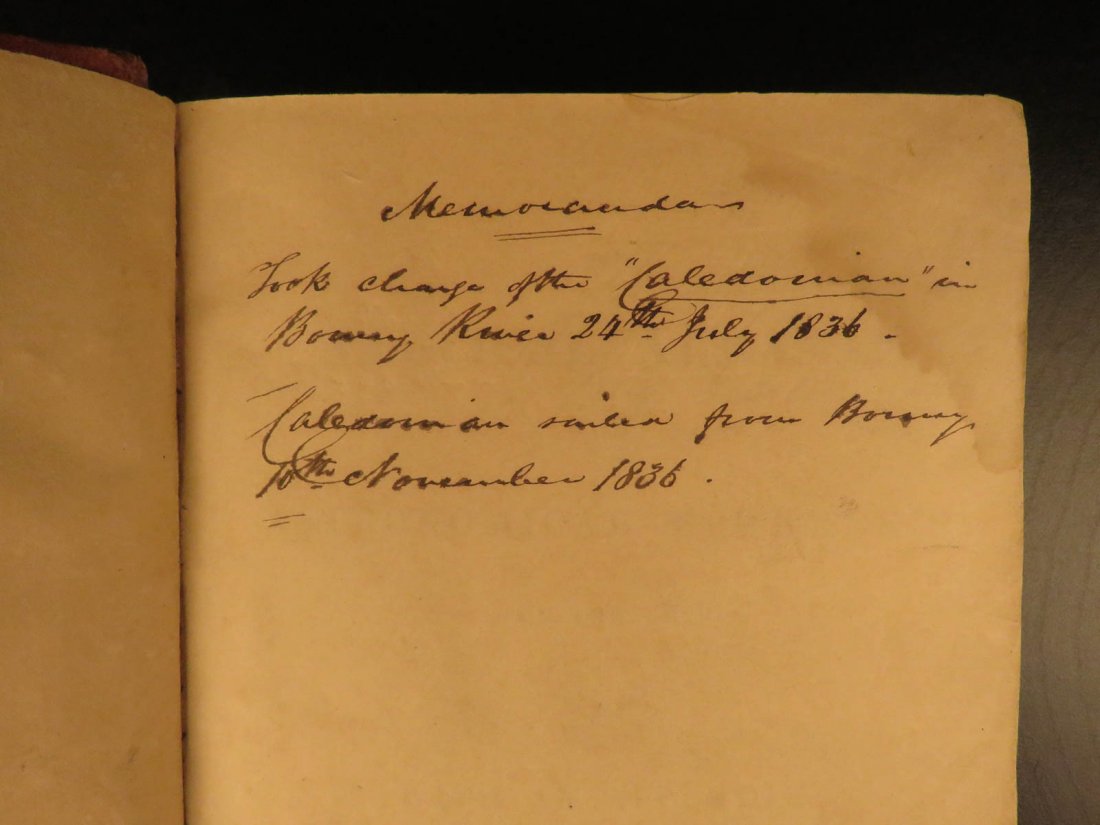 Memoranda
Took charge of the "Caledonian" in
Bonny River 24th July 1836.
Caledonian sailed from Bonny
10th November 1836.